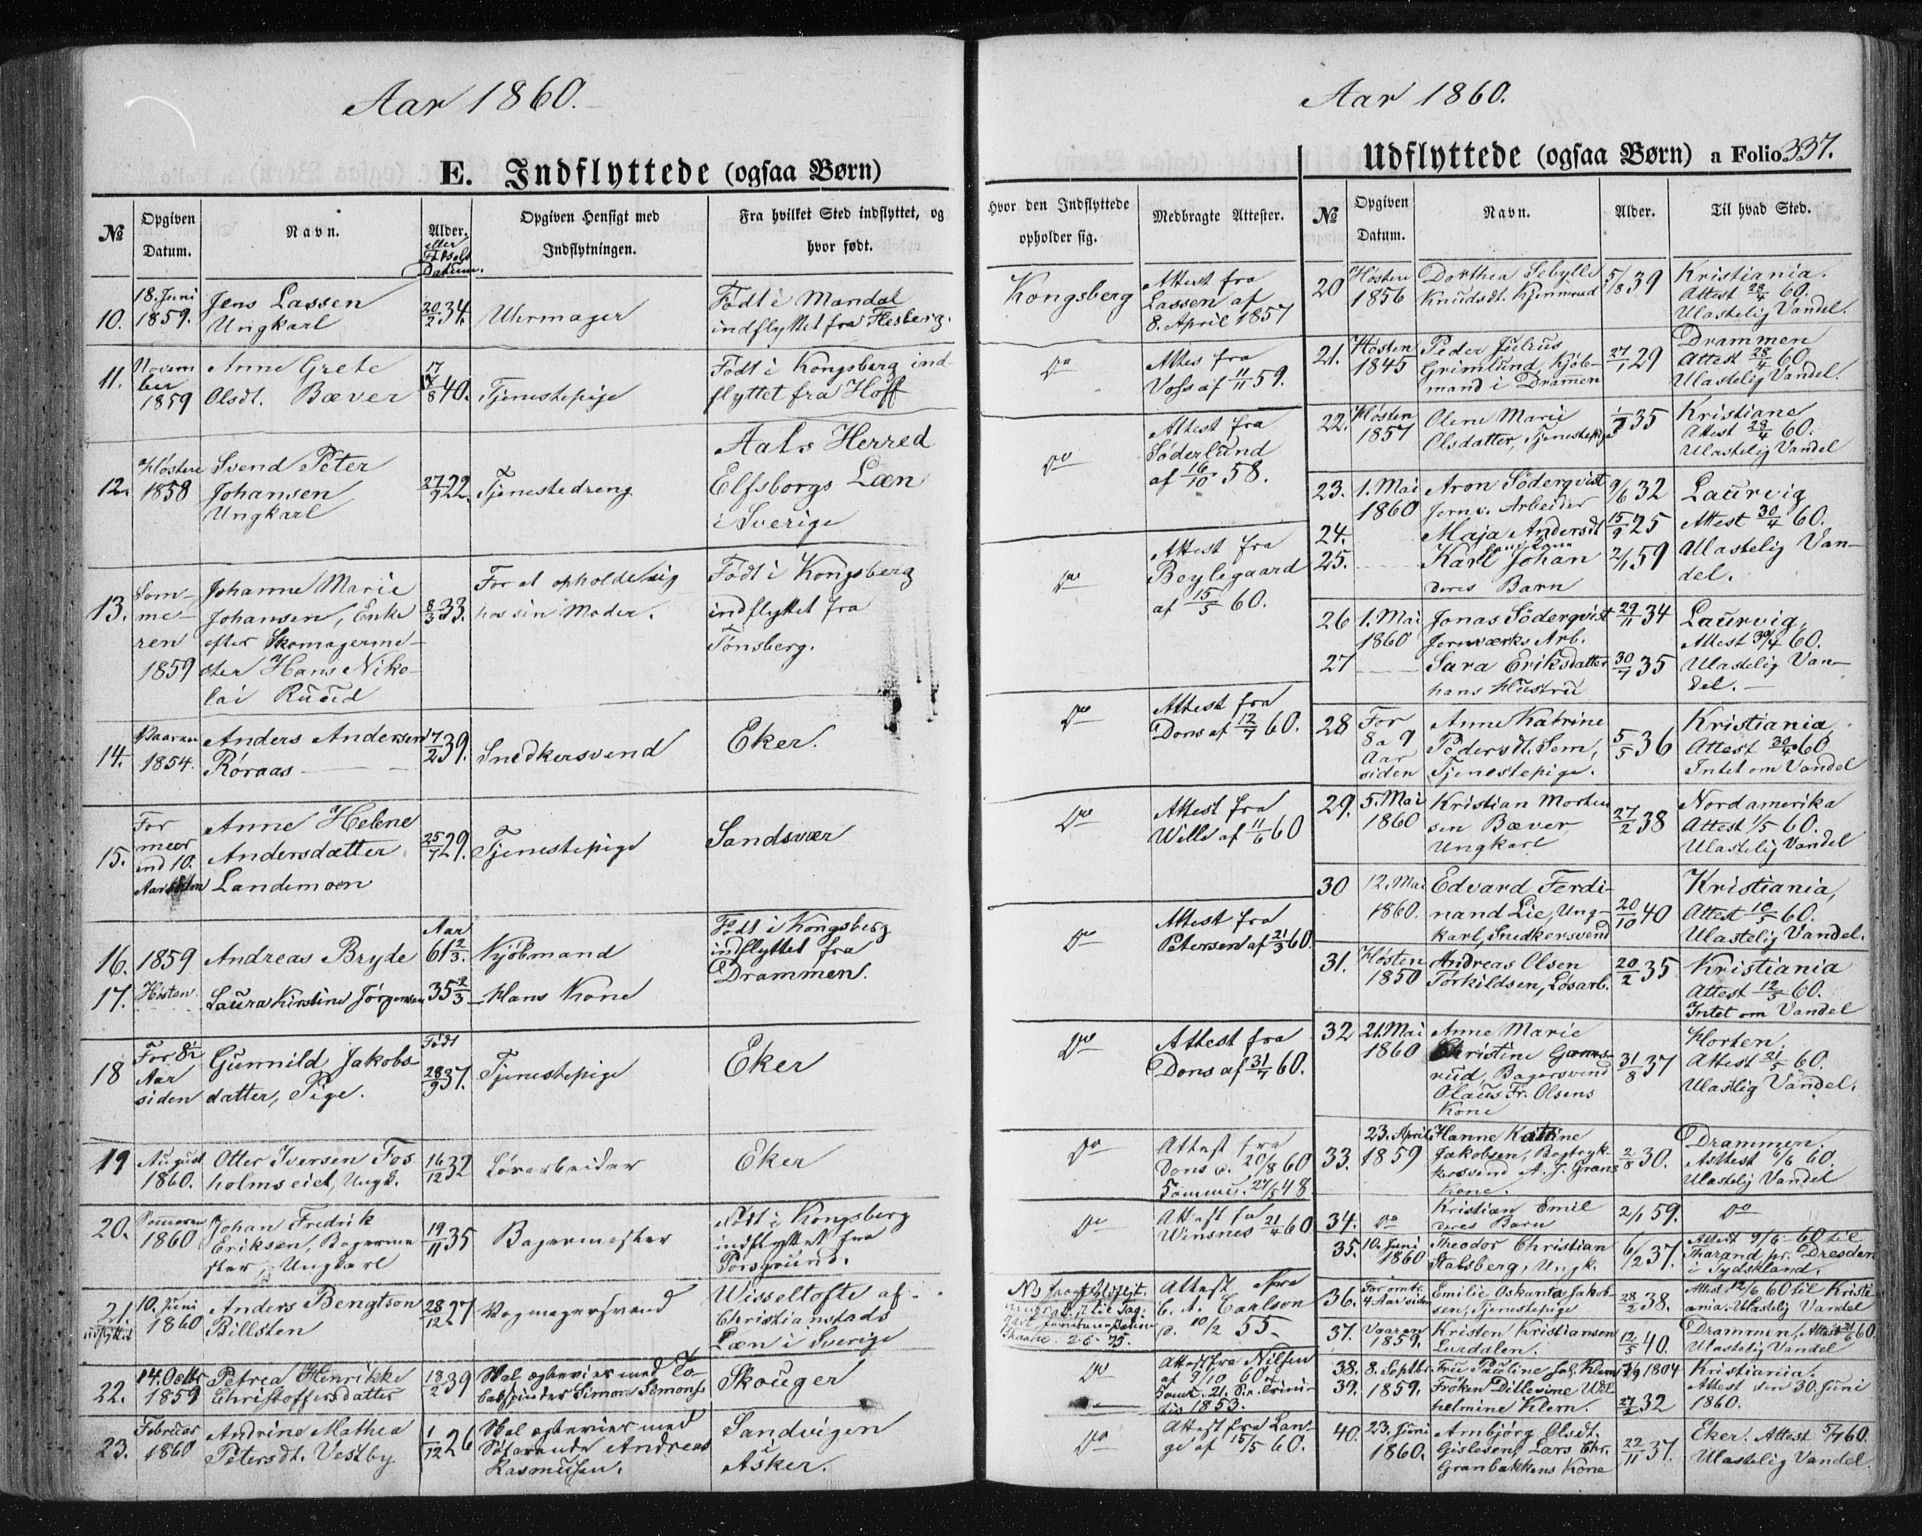 Aar 1860.
E. Indflyttede (ogsaa Børn)
№
Opgiven Datum.
Navn.
Alder.
eller Fødsels Datum.
Opgiven Hensigt med Indflytningen.
Fra hvilket Sted indflyttet, og hvor født.
10.
18. Juni
1859.
Jens Lassen
Ungkarl
20/2 34.
Uhrmager
Født i Mandal
indflyttet fra Flesberg.
11.
Novem
ber
1859
Anne Grete
Olsdt. Bæver
17/8 40.
Tjenestepige
Født i Kongsberg ind-
flyttet fra Hoff
12.
Høsten
1858
Svend Peter
Johansen
Ungkarl
27/9 22.
Tjenestedreng
Aals Herred
Elfsborgs Læn
i Sverige
13.
Som-
me-
ren
1859
Johanne Marie
Johansen, Enke
efter Skomagerme-
ster Hans Niko-
lai Ruud
8/3 33.
For at opholde sig
hos sin Moder.
Født i Kongsberg
indflyttet fra
Tønsberg.
14.
Vaaren
1854.
Anders Andersen
Røraas
17/2 39.
Snedkersvend
Eker.
15.
For
meer
end 10.
Aar siden
Anne Helene
Andersdatter
Landemoen
25/7 29.
Tjenestepige
Sandsvær
16.
1859
Andreas Bryde
Aar
61 2/3.
Kjøbmand
Født i Kongsberg
indflyttet fra
Drammen.
17.
Høsten.
Laura Kirstine Jørgensen
35 2/3
Hans Kone
18
For 8½
Aar
siden
Gunnild Jakobs-
datter, Pige.
Født
28/9 37.
Tjenestepige
Eker
19
August
1860.
Otter Iversen Fos-
holmseiet, Ungk.
16/12 32
Løsarbeider
Eker
20.
Sommeren
1860
Johan Fredrik
Eriksen, Bagerme
ster, Ungkarl
19/11 35
Bagermester
Født i Kongsberg
indflyttet fra
Porsgrund.
21.
udflyttet
10. Juni
1860
Anders Bengtson
Billsten
28/12 27
Vogmagersvend
Wisseltofte af
Christianstads
Læn i Sverige
22.
14. Octbr
1859
Petrea Henrikke
Christoffersdatter
18/2 39
Skal ægtevies med To
baksspinder Simon Simons.
Skouger
23.
Februar
1860
Andrine Mathea
Petersdt. Vestby
1/12 26
Skal ægtevies med
Søfarende Andreas
Rasmusen.
Sandvigen
Asker.
Aar 1860.
Udflyttede (ogsaa Børn) a Folio 337.
Hvor den Indflyttede opholder sig.
Medbragte Attester.
№
Opgiven Datum.
Navn.
Alder.
Til hvad Sted.
Kongsberg
Attest fra
Lassen af
8. April 1857
Do
Attes fra
Voss af 11/11 59.
Do
Attest fra
Söderlund
af 16/10 58.
Do
Attest fra
Beylegaard
af 15/5 60.
Do
Attest fra
Dons af 12/7 60.
Do
Attest fra
Wille af 11/6 60
Do
Attest fra
Petersen af 21/3 60
Do
Attest fra
Dons af 31/7 60.
Do
Attest fra
Dons a. 20/8 60
27/5 48
Do
Attest fra
Winsnes 21/4 60
2-6-75.
Attest fra
C. A. Carlson
p. 10/2 55
Do
Attest fra Nilsen
af 9/10 60
1853.
Do
Attest fra Lan-
ge af 15/5 60.
20
Høsten
1856
Dorthea Sebylle
Knudsdt. Kjennerud
5/8 39
Kristiania.
Attest 28/4 60.
Ulastelig Vandel.
21.
Høsten
1845
Peder Julius
Grimlund, Kjøb-
mand i Dramen
27/1 29
Drammen
Attest 28/4 60.
Ulastelig Vandel.
22.
Høsten
1857
Olene Marie
Olsdatter, Tjenestepige
1/7 35
Kristiane
Attest 28/4 60.
Ulastelig Vandel
23.
1. Mai
1860
Aron Söderqvist
Jernv. Arbeider
9/6 32
Laurvig
Attest 30/4 60.
Ulastelig Van-
del.
24.
Maja Andersdt
hans Kone
15/9 25
25.
Karl Johan
deres Barn
2/1 59
26
1. Mai
1860
Jonas Söderqvist
Jernværks Arb.
29/11 34
Laurvig,
Attest 30/4 60.
Ulastelig Van-
del.
27
Sara Eriksdatter
hans Hustru
30/7 35
28
For
8 a 9
Aar
siden
Anne Katrine
Pedersdt. Sem,
Tjenestepige.
5/5 36
Kristiania
Attest 30/4 60
Intet om Vandel
29.
5. Mai
1860
Kristian Morten
sen Bæver,
Ungkarl
27/2 38
Nordamerika
Attest 1/5 60.
Ulastelig Vandel
30
12. Mai
1860.
Edvard Ferdi-
nand Lie, Ung-
karl, Snedkersvend
20/10 40
Kristiania,
Attest 10/5 60.
Ulastelig Vandel.
31.
Høsten
1850
Andreas Olsen
Torkildsen, Løsarb.
20/2 35
Kristiania
Attest 12/5 60.
Intet om Vandel
32
21. Mai
1860
Anne Marie
Christine Garms-
rud, Bagersvend
Olaus Fr. Olsens
Kone
31/8 37
Horten.
Attest 21/5 60.
Ulastlig Vandel.
33.
23. April
1859
Hanne Katrine
Jakobsen, Bogtryk
kersvend A. J. Grans
Kone.
2/8 30.
Drammen.
Asttest 6/6 60.
Ulastelig Vandel
34.
Do
Kristian Emil
deres Barn
2/1 59.
Do
35.
10. Juni
1860
Theodor Christian
Stalsberg, Ungk.
6/2 37.
Attest 9/6-60 til
Tharand pr. Dresden
i Tydskland.
36.
For omtr.
4 Aar siden
Emilie Oskanta Jakob-
sen, Tjenestepige
28/2 38.
Attest 12/6 60 til Kristi
ania, Ulastelig Vandel
37.
Vaaren
1859.
Kristen Kristiansen
Lurdalen.
12/5 40.
Drammen, Attest 21/6 60.
Ulastelig Vandel
38.
8. Septbr
Frue Pauline Klem
1804
Kristiania.
Attest den 30. Juni
1860.
39.
1859.
Frøken Dillevine Wil
helmine Klem.
27/2 32
40.
23. Juni
1860.
Anbjörg Olsdt.
Gislesen, Lars Chr.
Granbakkens Kone
22/11 37.
Eker. Attest 5/7 60.
Ulastelig Vandel.